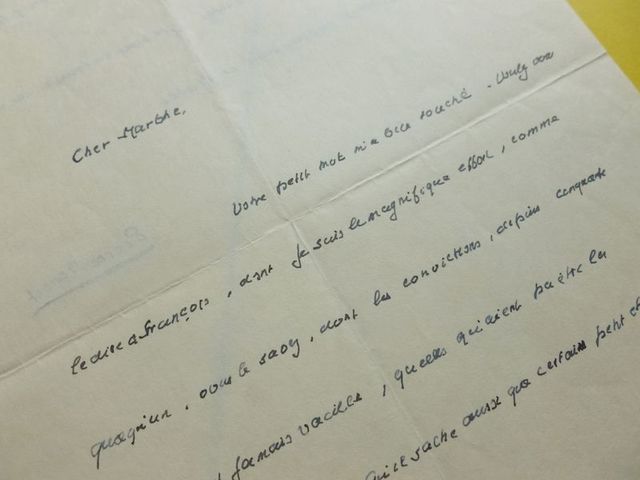 Cher Marthe,
Votre petit mot m'a bien touché. Voulez vous
le dire à François, dont je suis le magnifique effort, comme
quelqu'un, vous le savez, dont les convictions, depuis cinquante
jamais vacillé, quelles qu'aient pu être les
qu'il sache aussi que certains petit